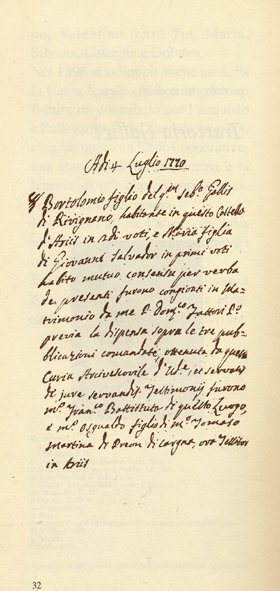 Adi 4 Luglio 1770
Bortolomio figlio del qm Sebo. Gallis
di Rivignano, habitante in questo Castello
d'Ariis in 2di voti, e Maria figlia
di Giovanni Salvador in primi voti
habito mutuo consensu per verba
de presenti furono congionti in Ma-
trimonio da me P. Domco. Fattori Po.
previa la dispensa sopra le tre pub-
blicazioni comandate, ottenuta da questa
Curia Arcivescovile d'Ude, et servatis
de jure servandis. Testimonij furono
mo. Franco. Battistuta di questo Luogo,
e mo. Osqualdo figlio di mo. Tomaso
Martina di Preon di Cargna, ora
in Ariis
32